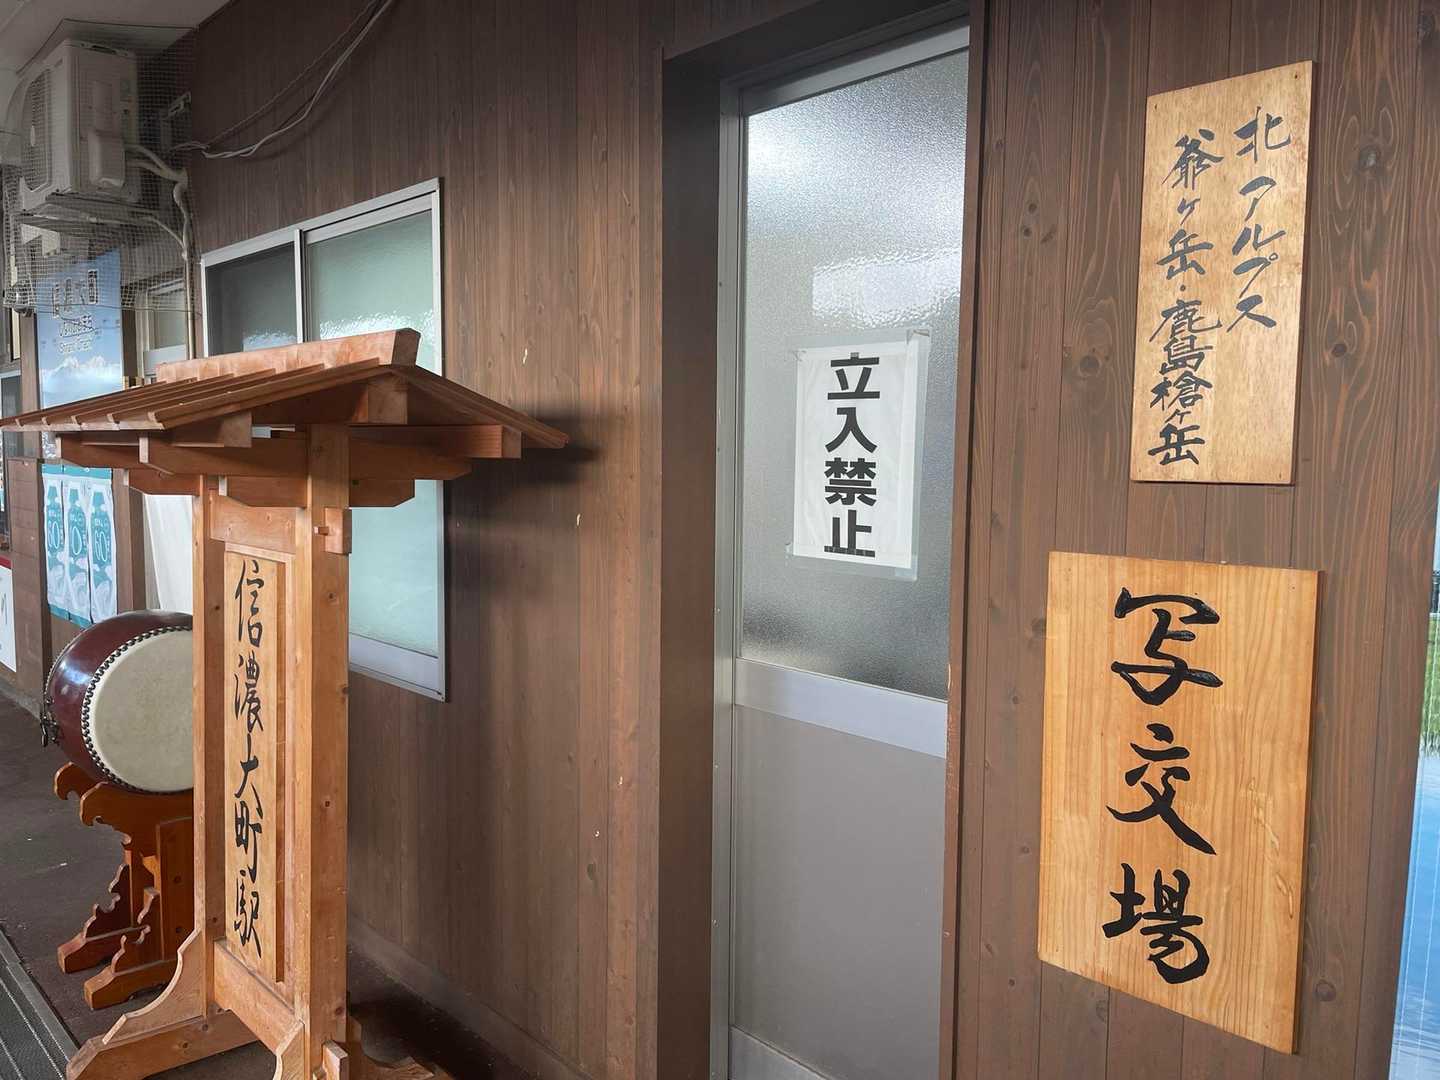 北アルプス
爺ヶ岳・鹿島槍ヶ岳
写交場
立入禁止
信濃大町駅